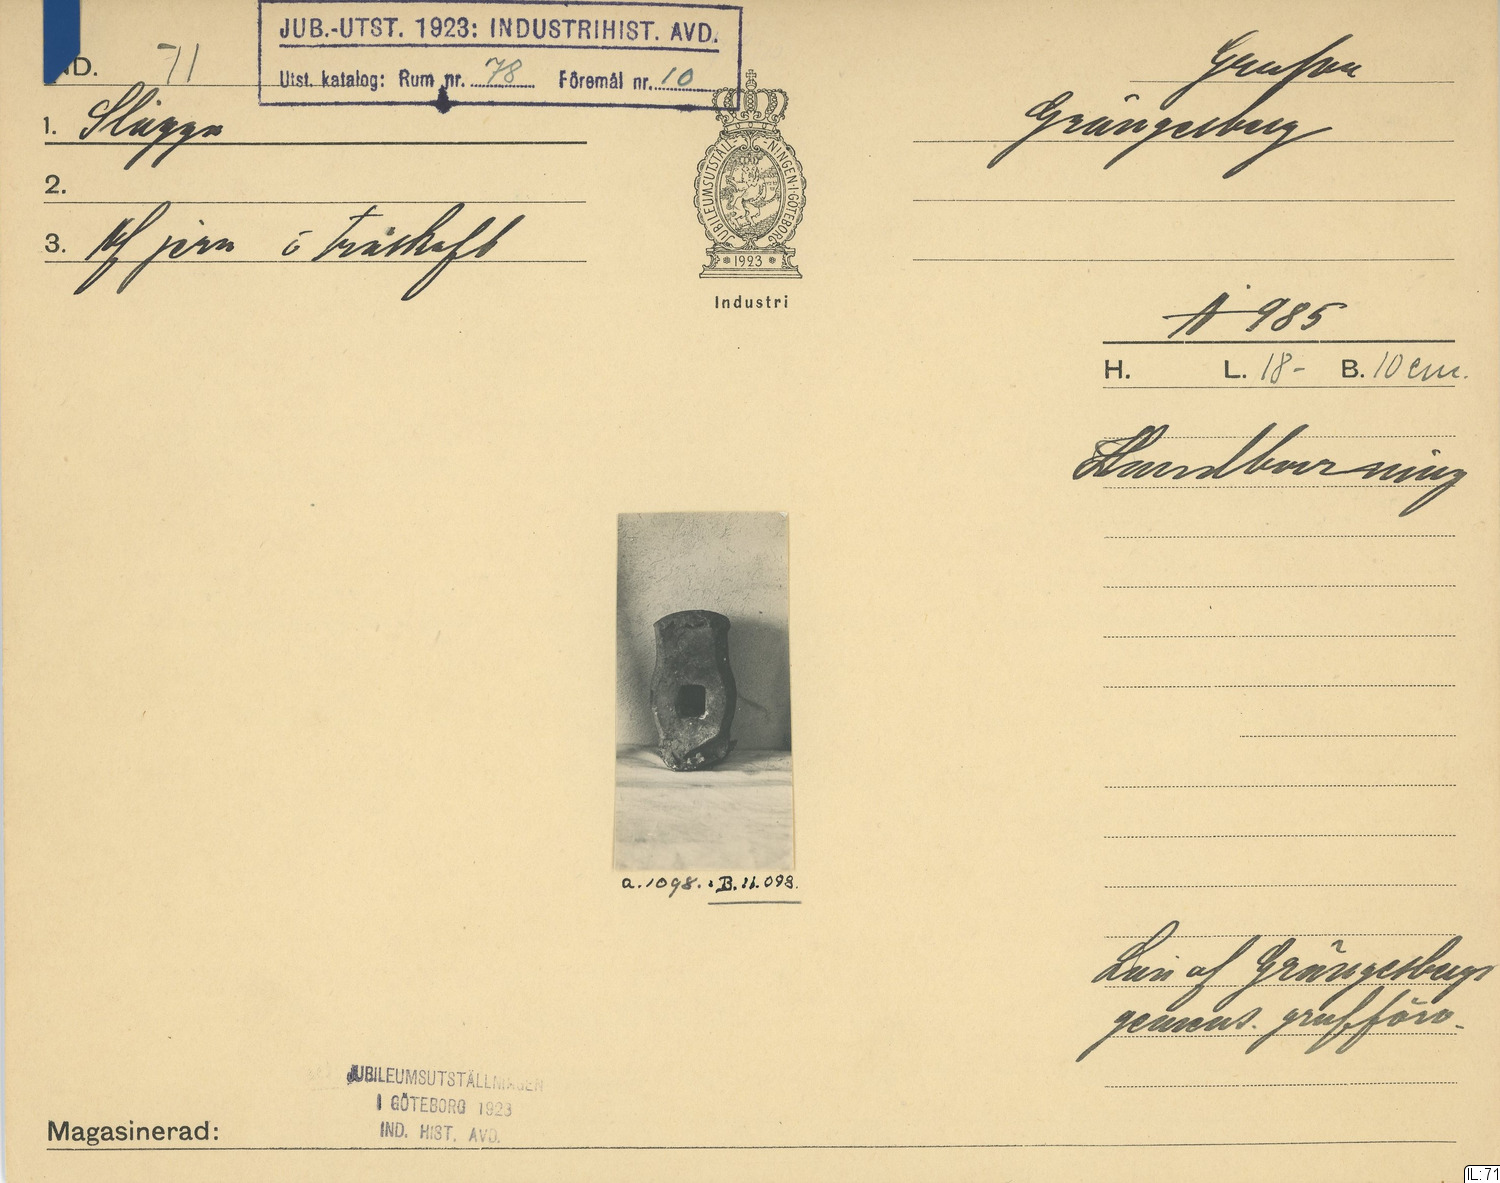 JUB.-UTST. 1923: INDUSTRIHIST. AVD.
Utst. katalog: Rum nr. 78 Föremål nr. 10
ND. 71
1. Slägga
2.
3. Af jern i träskaft
JUBILEUMSUTSTÄLL-NINGEN·I·GÖTEBORG
1923
Industri
Grufva
Grängesberg
N 985
H. L. 18- B. 10 cm.
Handborrning
a.1098. B.11.098.
Lån af Grängesbergs
gemens. grufförv.
JUBILEUMSUTSTÄLLNINGEN
I GÖTEBORG 1923
IND. HIST. AVD.
Magasinerad:
IL:71